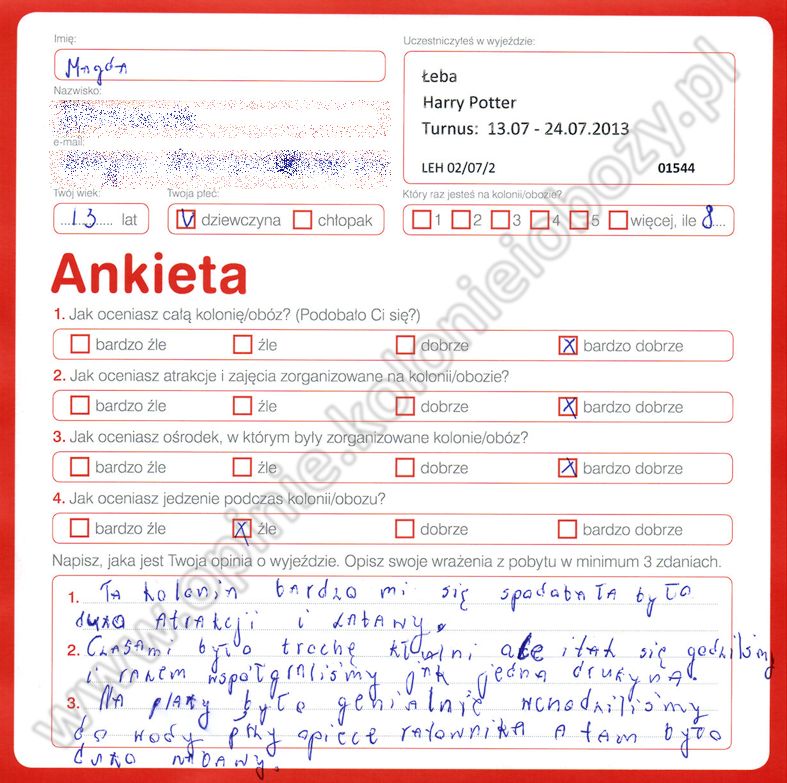 Imię:
Magda
Uczestniczyłeś w wyjeździe:
Łeba
Harry Potter
Turnus: 13.07 - 24.07.2013
LEH 02/07/2 01544
Nazwisko:
e-mail:
Twój wiek:
13 lat
Twoja płeć:
V dziewczyna chłopak
Który raz jesteś na kolonii/obozie?
1 2 3 4 5 więcej, ile 8
Ankieta
1. Jak oceniasz całą kolonię/obóz? (Podobało Ci się?)
bardzo źle źle dobrze X bardzo dobrze
2. Jak oceniasz atrakcje i zajęcia zorganizowane na kolonii/obozie?
bardzo źle źle dobrze X bardzo dobrze
3. Jak oceniasz ośrodek, w którym były zorganizowane kolonie/obóz?
bardzo źle źle dobrze X bardzo dobrze
4. Jak oceniasz jedzenie podczas kolonii/obozu?
bardzo źle X źle dobrze bardzo dobrze
Napisz, jaka jest Twoja opinia o wyjeździe. Opisz swoje wrażenia z pobytu w minimum 3 zdaniach.
1. Ta kolonia bardzo mi się spodobała było
dużo atrakcji i zabawy.
2. Czasami było trochę kłutni ale i tak się godziliśmy
i razem współgraliśmy jak jedna drużyna.
3. Na plaży było genialnie wchodziliśmy
do wody przy opiece ratownika a tam było
dużo zabawy.
www.opinie.kolonieiobozy.pl